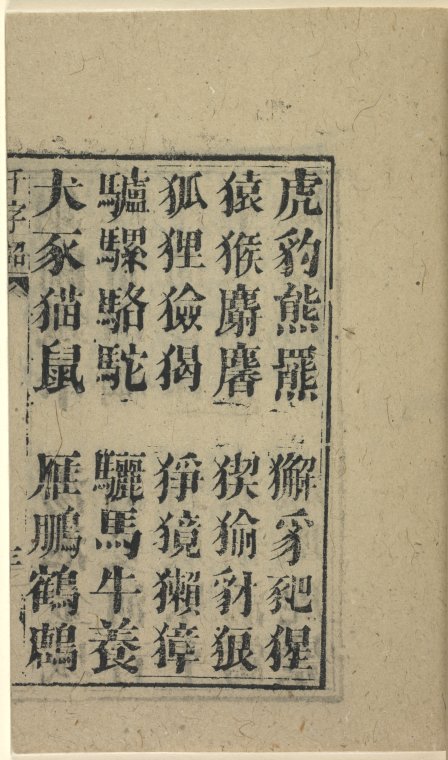 虎豹熊羆 獬豸犯猩
猿猴麝麐 猰㺄豺狼
狐狸獫猲 狰獍獺獐
驢騾駱駝 驪馬牛養
犬豕猫鼠 雁鵬鶴鷓
千字
三